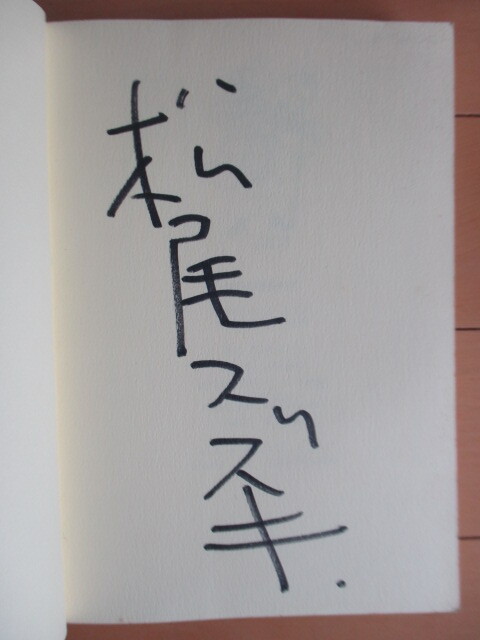 松尾スズキ.